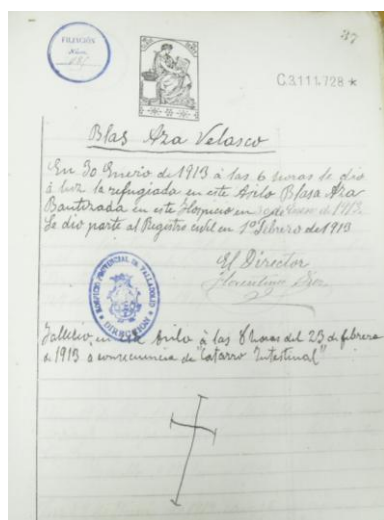 FILIACIÓN
Núm.
37
C.3.111.728 *
Blas Aza Velasco
En 30 Enero de 1913 á las 6 horas se dio
á luz la refugiada en este Asilo Blasa Aza
Bautizada en este Hospicio en de Enero de 1913.
Se dio parte al Registro civil en 1º Febrero de 1913
El Director
Florentino
HOSPICIO PROVINCIAL DE VALLADOLID
DIRECCION
Fallecio, en este Asilo á las 8 horas del 23 de febrero
de 1913 á consecuencia de "Catarro Intestinal"